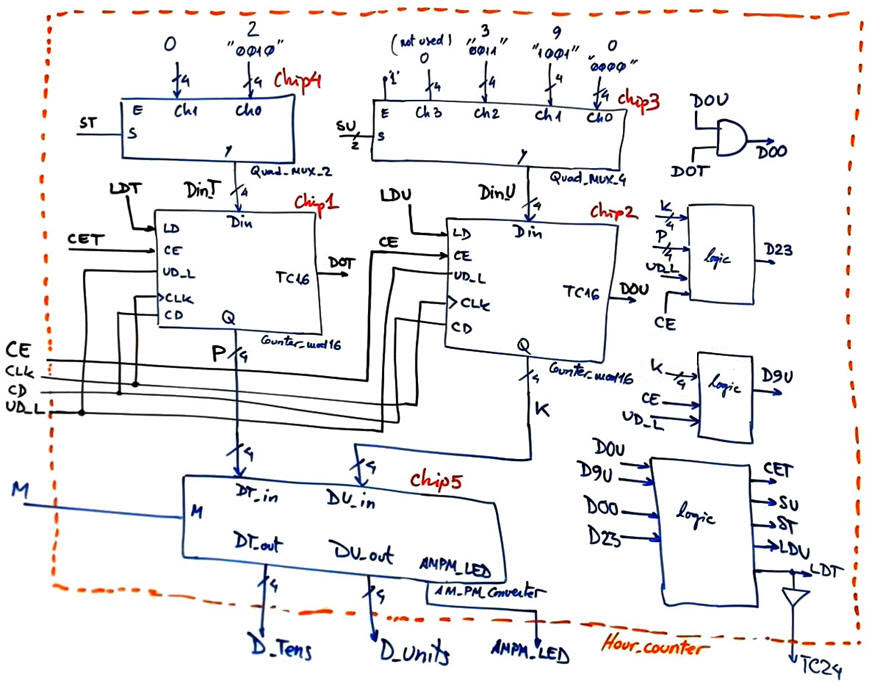 0
2
"0010"
(not used)
0
3
"0011"
9
"1001"
0
"0000"
4
4
Chip4
'1'
4
4
4
4
chip3
E
Ch1
Ch0
ST
S
Y
Quad_MUX_2
E
Ch3
Ch2
Ch1
Ch0
SU
2
S
Y
Quad_MUX_4
DOU
DOT
D00
Din_T
4
Chip1
LDT
Din_U
4
Chip2
LDU
LD
Din
CET
CE
UD_L
TC16
DOT
CLK
CD
Q
Counter_mod16
P
4
LD
Din
CE
CE
UD_L
TC16
DOU
CLK
CD
Q
Counter_mod16
4
K
K
4
P
4
UD_L
CE
logic
D23
CE
CLK
CD
UD_L
K
4
CE
UD_L
logic
D9U
4
4
chip5
M
DT_in
DU_in
M
DT_out
DU_out
AMPM_LED
AM_PM_Converter
4
4
D_Tens
D_Units
AMPM_LED
DOU
D9U
D00
D23
logic
CET
SU
ST
LDU
LDT
TC24
Hour_counter